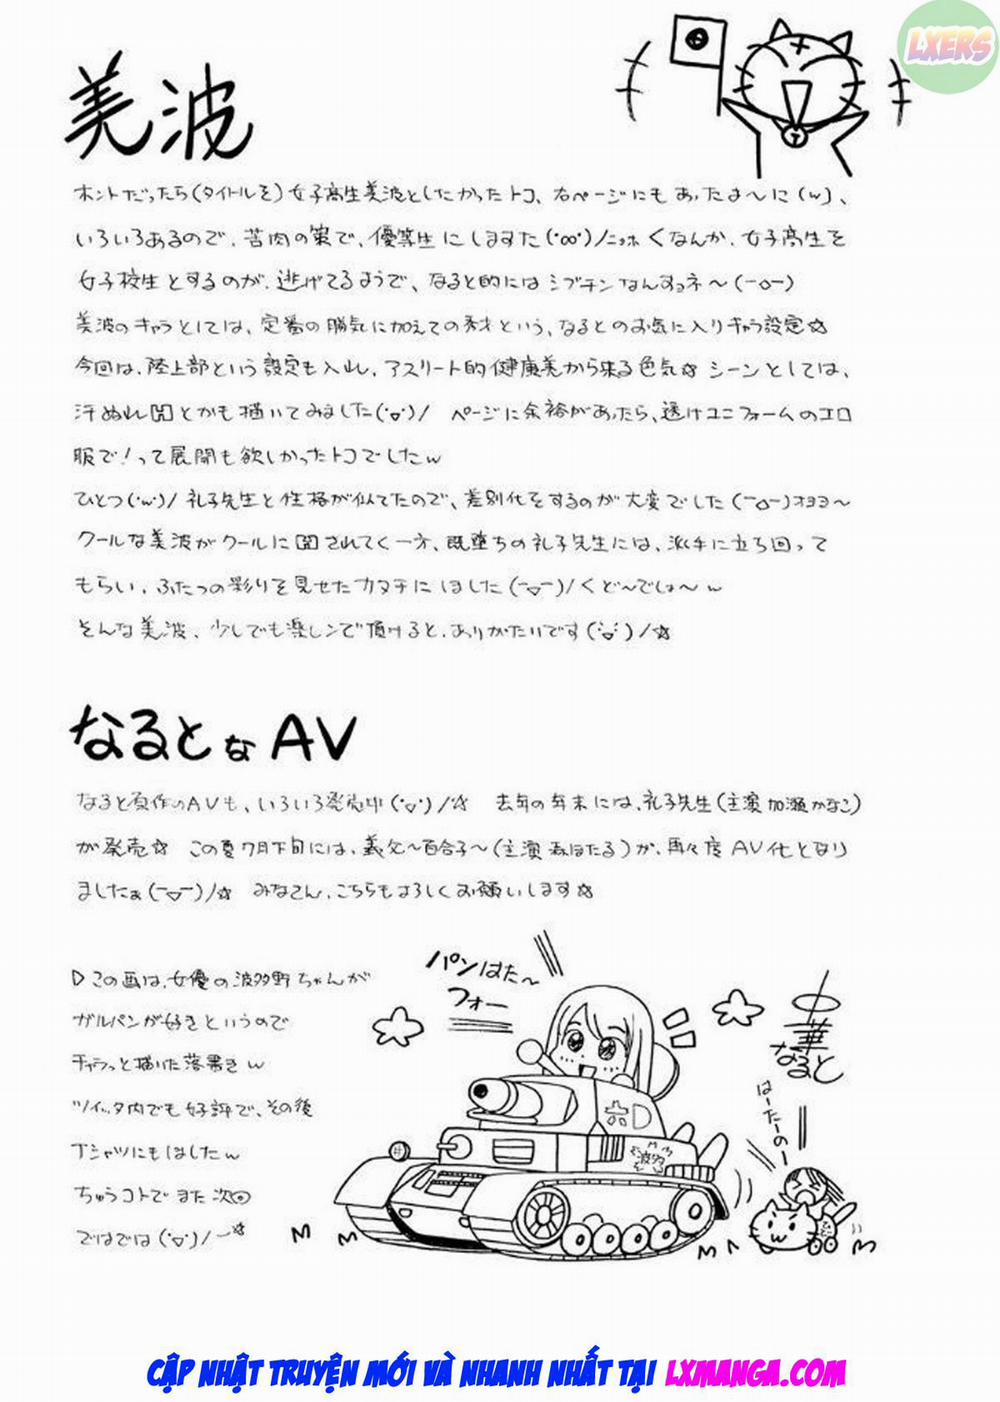 LXERS
美波
ホントだったら(タイトルを)女子高生美波としたかったトコ、右ページにもあったよ〜に(w)、
いろいろあるので、苦肉の策で、優等生にしますた(・∞・)/ニッホくなんか、女子高生を
女子校生とするのが、逃げてるようで、なると的にはシブチンなんすョネ〜(ーoー)
美波のキャラとしては、定番の勝気に加えての秀才という、なるとのお気に入りキャラ設定☆
今回は、陸上部という設定も入れ、アスリート的健康美から来る色気☆シーンとしては、
汗ぬれ図とかも描いてみました(・▽・)/ ページに余裕があったら、透けユニフォームのエロ
服で!って展開も欲しかったトコでしたw
ひとつ(・w・)/礼子先生と性格が似てたので、差別化をするのが大変でした(ーoー)オヨヨ〜
クールな美波がクールに図されてく一方、既堕ちの礼子先生には、派手に立ち回って
もらい、ふたつの彩りを見せたカタチにしました(ー▽ー)/くど〜でしょ〜w
そんな美波、少しでも楽しンで頂けると、ありがたいです(・▽・)/☆
なるとなAV
なると原作のAVも、いろいろ発売中(・▽・)/☆ 去年の年末には、礼子先生(主演 加瀬かなこ)
が発売☆ この夏7月下旬には、義父〜百合子〜(主演 森ほたる)が、再々度AV化となり
ましたぁ(ー▽ー)/☆ みなさん、こちらもよろしくお願いします☆
▷この画は、女優の波多野ちゃんが
ガルパンが好きというので
チャラっと描いた落書きw
ツイッタ内でも好評で、その後
Tシャツにもしましたw
ちゅうコトでまた次回
ではでは(・▽・)/ー☆
パンはた〜
フォー
中華
なると
はーたーのー
CẬP NHẬT TRUYỆN MỚI VÀ NHANH NHẤT TẠI LXMANGA.COM